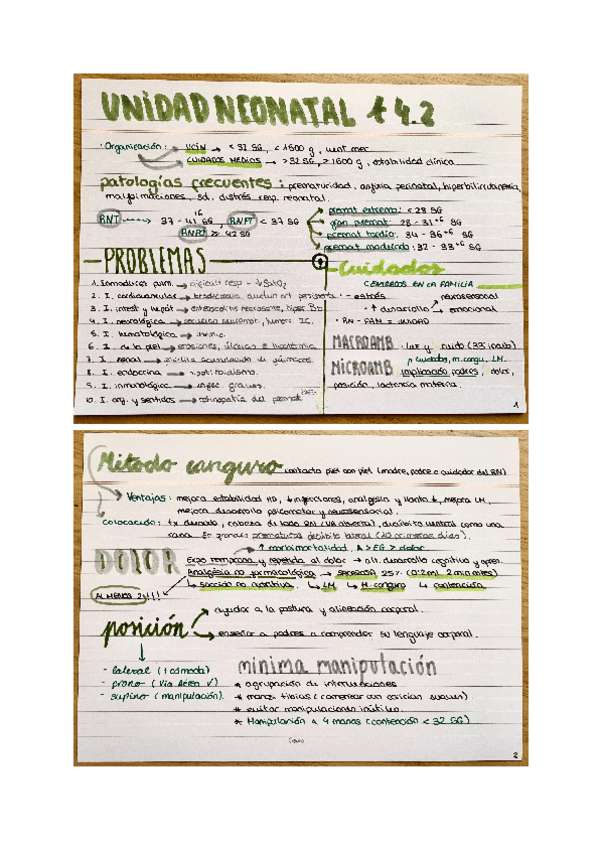 UNIDAD NEONATAL t 4.2
· Organización: UCIN → < 32 SG, < 1500 g, vent mec
CUIDADOS MEDIOS → > 32 SG, ≥ 1500 g, estabilidad clínica
patologías frecuentes: prematuridad, asfixia perinatal, hiperbilirrubinemia,
malformaciones, sd. distrés resp. neonatal.
RNT → 37 - 41+6 SG, RNPT < 37 SG
RNPZ ≥ 42 SG
premat extremo: < 28 SG
gran premat: 28 - 31+6 SG
premat tardío: 34 - 36+6 SG
premat moderado: 32 - 33+6 SG
PROBLEMAS
1. Inmadurez pulm. → dificult resp - ↓ Sat O2
2. I. cardiovascular → bradicardia, ductus art persistente
3. I. intest y hepát → enterocolitis necrosante, hiper Bb
4. I. neurológica → hemorr. IC.
5. I. hematológica →
6. I. de la piel → erosiones, úlceras e hipotermia
7. I. renal → acumulación de fármacos.
8. I. endocrina → hipotiroidismo.
9. I. inmunológica → infecc. graves.
10. I. org. y sentidos → retinopatía del premat
Cuidados
CENTRADOS EN LA FAMILIA
- estrés
neurosensorial
↑ desarrollo
emocional
· RN - FAM = UNIDAD
MACROAMB: luz y ruido
MICROAMB
cuidados, m. cangu, LM.
implicando padres, dolor,
posición, lactancia materna.
1
Método canguro contacto piel con piel (madre, padre o cuidador del RN)
Ventajas: mejora estabilidad HD, ↓ infecciones, analgesia y llanto ↓, mejora LM,
mejora desarrollo psicomotor y neurosensorial.
Colocación: tx desnudo, cabeza de lado RN (VA abierta), decúbito ventral como una
rana. En grandes prematuros decúbito lateral (20 primeros días).
↑ morbimortalidad. A > EG > dolor
DOLOR
Expo temprana y repetida al dolor → alt. desarrollo cognitivo y apren.
Analgésia no farmacológica → SACAROSA 25% (0'2ml 2min antes)
↳ succión no nutritiva. ↳ LM ↳ M. canguro ↳ contención
AL MENOS 2!!!!
posición
ayudar a la postura y alineación corporal.
enseñar a padres a comprender su lenguaje corporal.
- lateral (+ cómoda)
- prono (Vía Aérea V)
- supino (manipulación).
mínima manipulación
* agrupación de intervenciones
* manos tibias (comenzar con caricias suaves).
* evitar manipulaciones inútiles.
* Manipulación a 4 manos (contención < 32 SG)
2